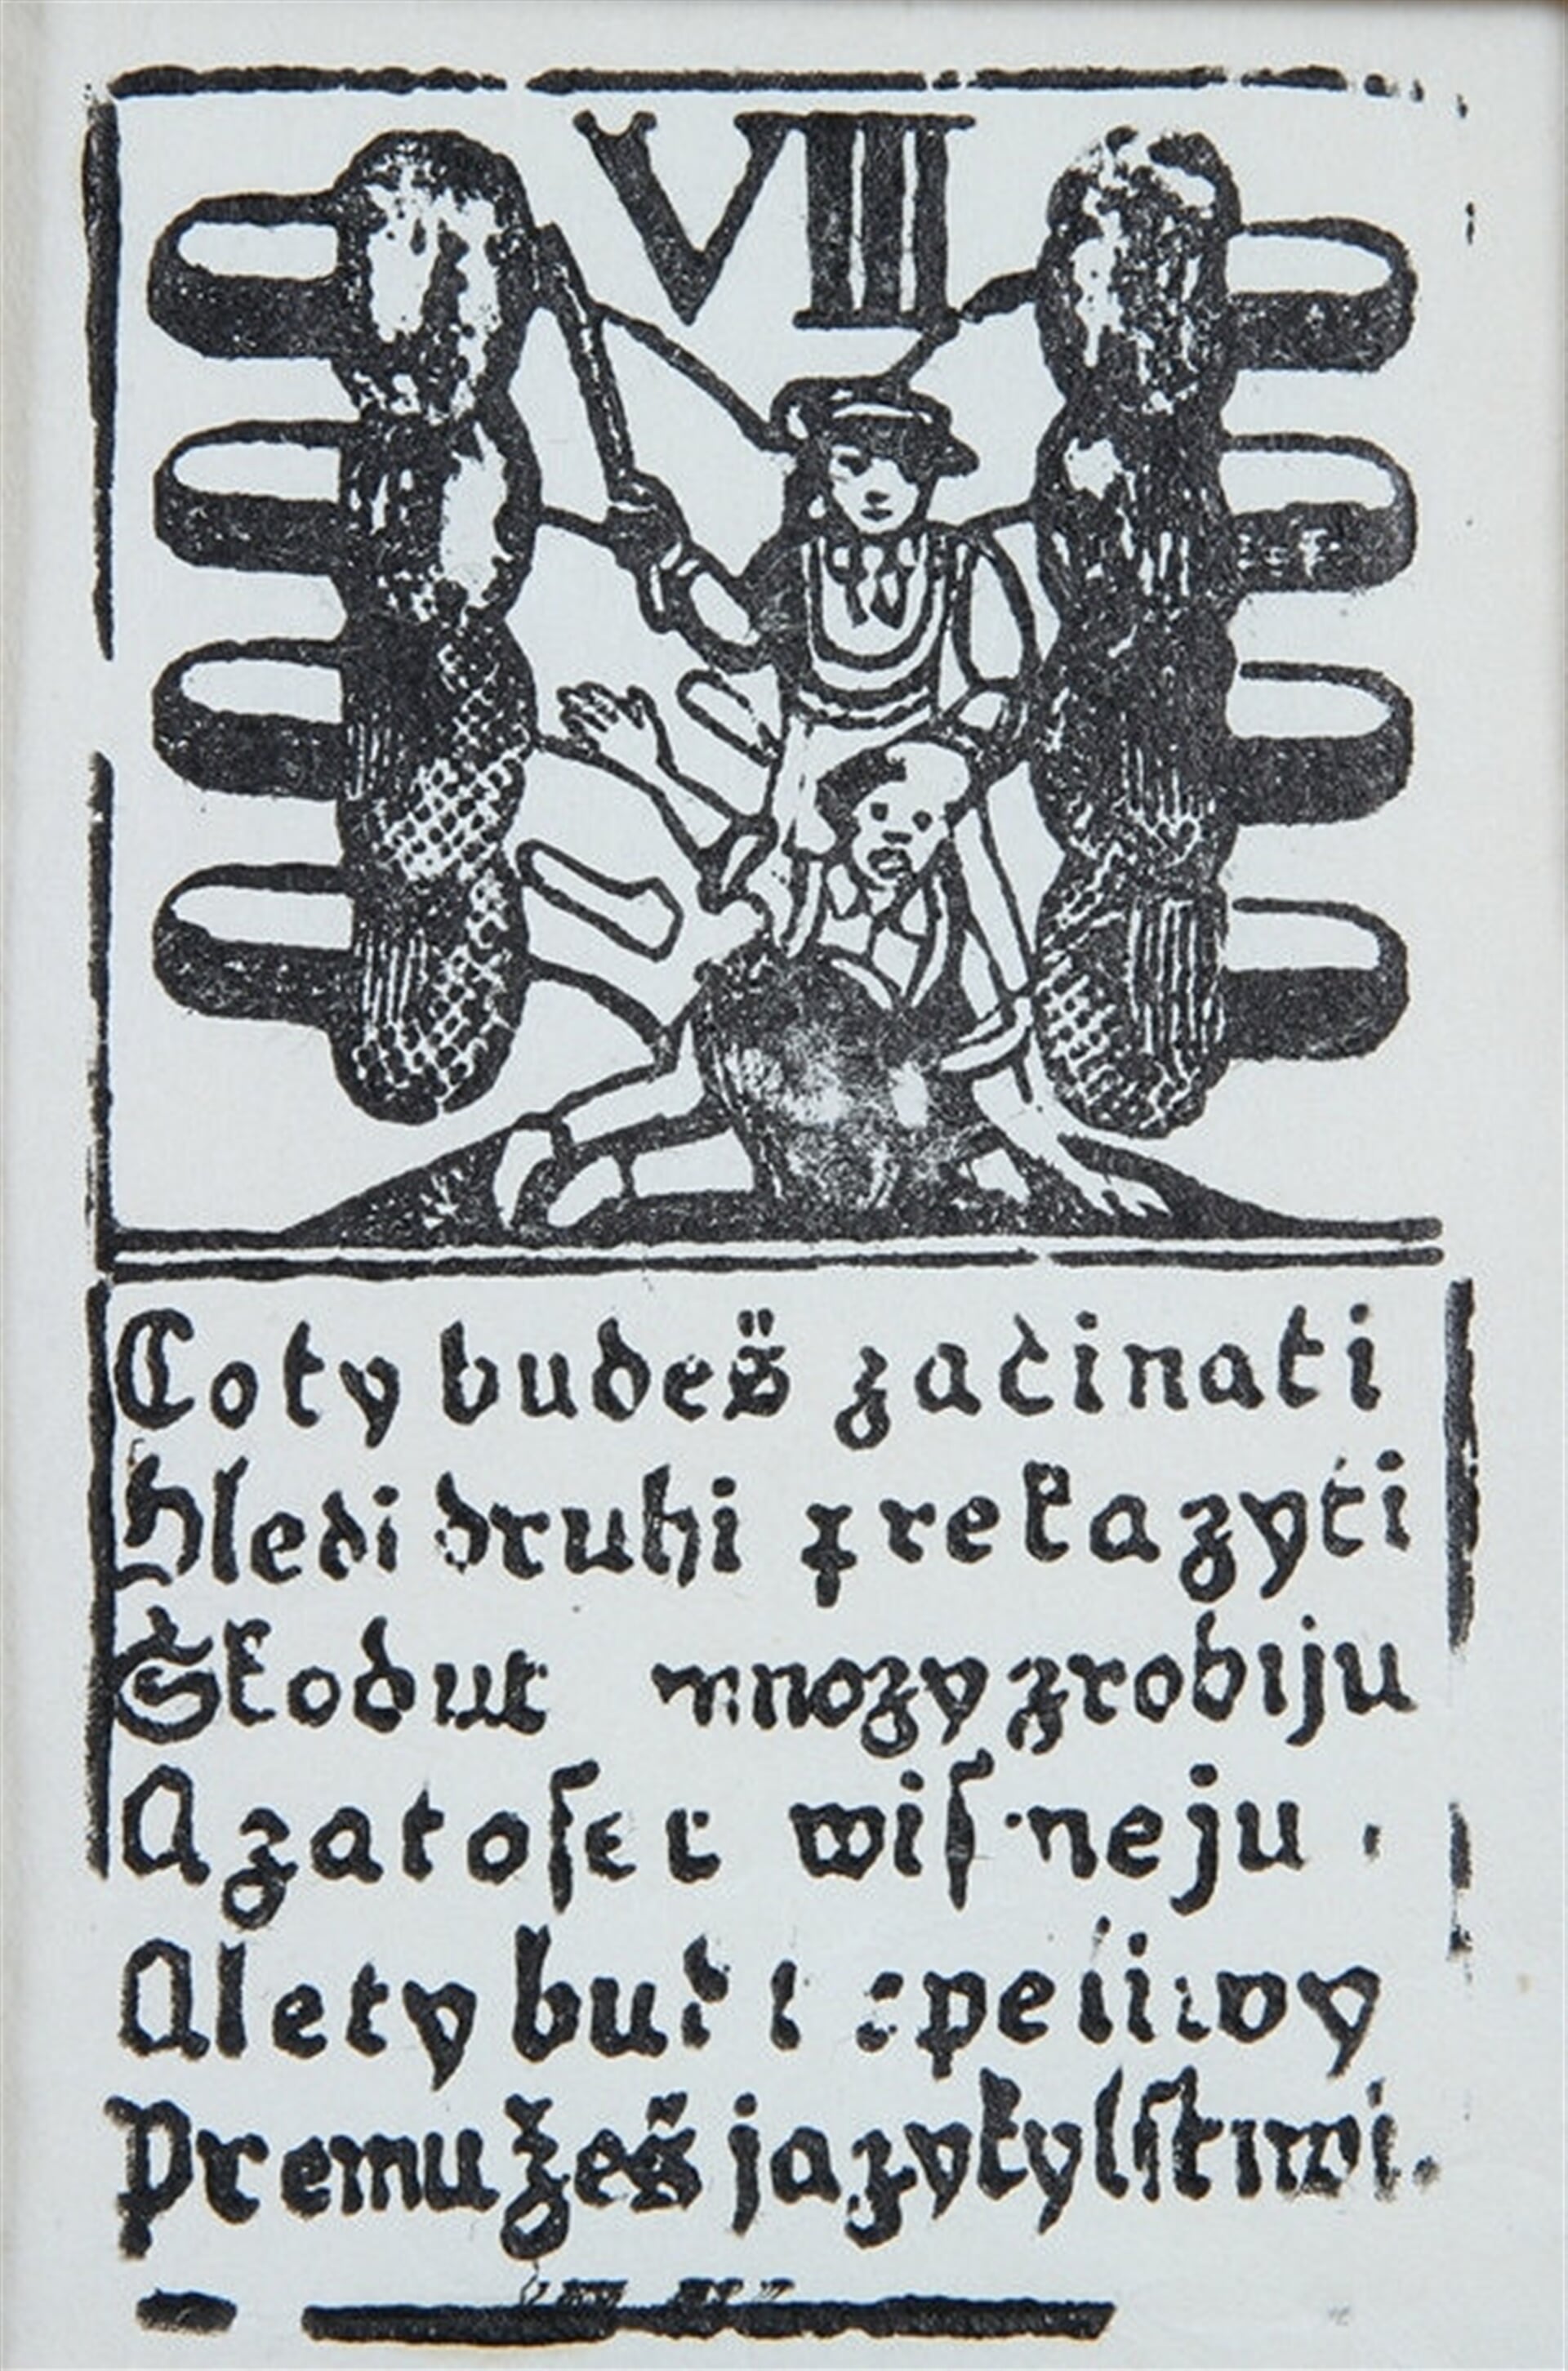 VIII
Coty budeš začinati
Hledi druhi prekazyti
Škodut mnozy zrobiju
Azatoser wiſneju
Alety bud
Premužeš jazykylſtiwi.